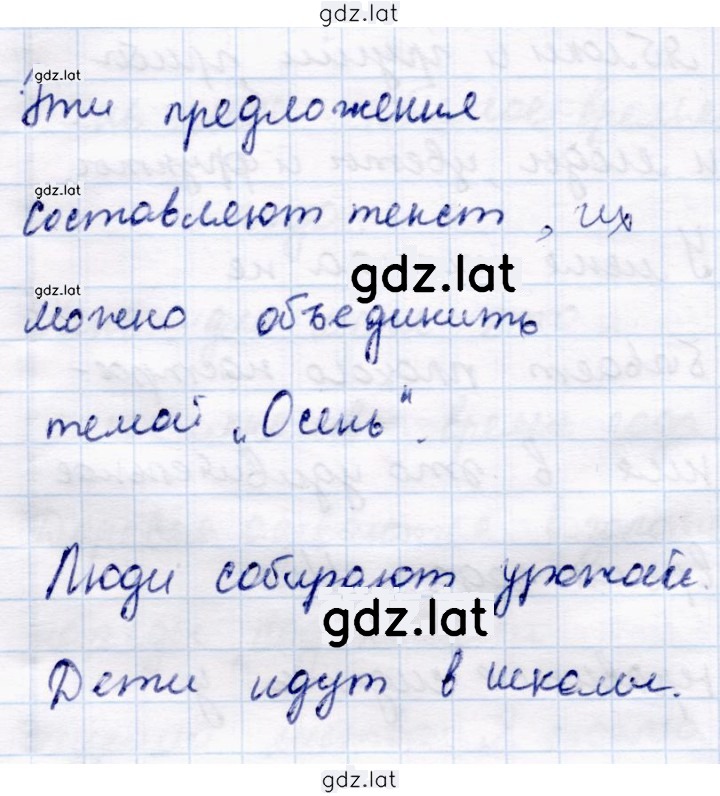 gdz.lat
gdz.lat
Эти предложения
gdz.lat
составляют текст, их
gdz.lat
gdz.lat
можно объединить
темой „Осень".
Люди собирают урожай.
gdz.lat
Дети идут в школы.
gdz.lat